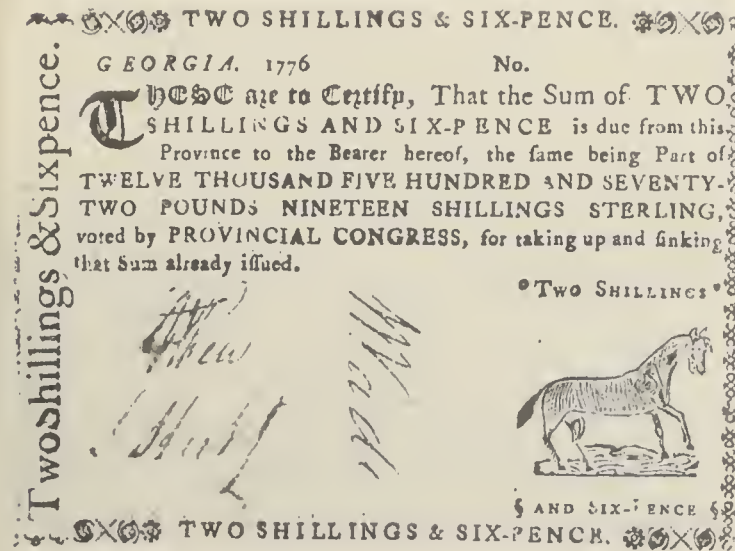 TWO SHILLINGS & SIX-PENCE.
TwoShillings & Sixpence.
GEORGIA. 1776 No.
THESE are to Certify, That the Sum of TWO
SHILLINGS AND SIX-PENCE is due from this
Province to the Bearer hereof, the ſame being Part of
TWELVE THOUSAND FIVE HUNDRED AND SEVENTY-
TWO POUNDS NINETEEN SHILLINGS STERLING,
voted by PROVINCIAL CONGRESS, for taking up and ſinking
that Sum already iſſued.
TWO SHILLINGS
AND SIX-PENCE
TWO SHILLINGS & SIX-PENCE.